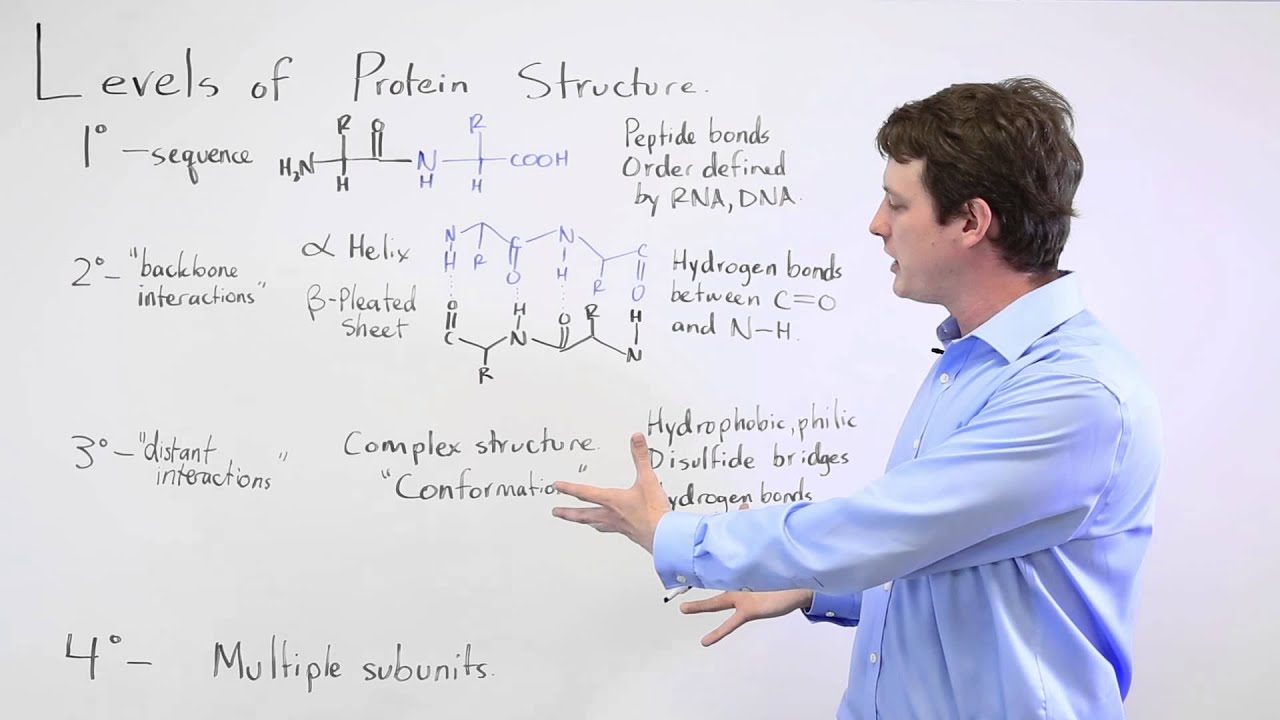 Levels of Protein Structure.
1° - sequence
R O R
H₂N N COOH
H H H
Peptide bonds
Order defined
by RNA, DNA.
2° - "backbone
interactions"
α Helix
β-Pleated
Sheet
N C N C
H R O H R O
O H O R H
C N N
R
Hydrogen bonds
between C=O
and N-H.
3° - "distant
interactions"
Complex structure.
"Conformation"
Hydrophobic, philic
Disulfide bridges
Hydrogen bonds
4° - Multiple subunits.